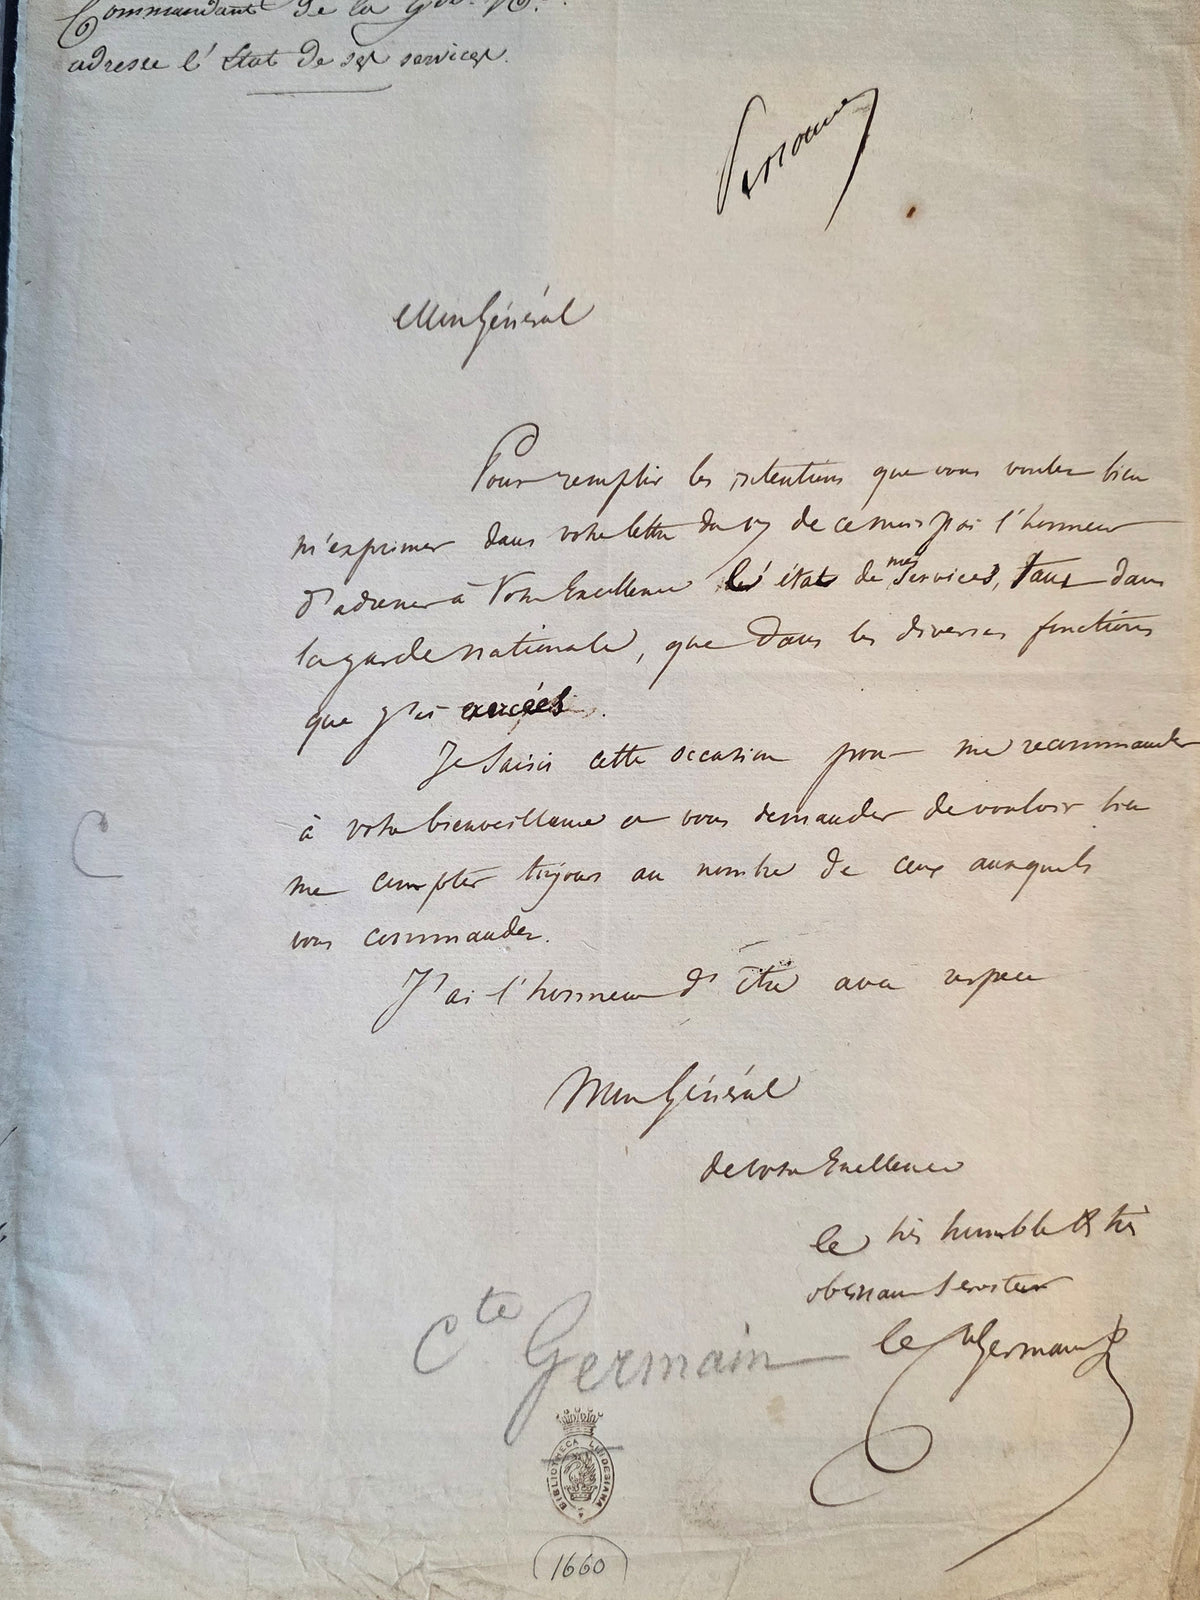 Commandant de la Gde. Nle.
adresse l'État de ses services.
Personnel
Mon Général
Pour remplir les intentions que vous voulez bien
m'exprimer dans votre lettre du 17 de ce mois j'ai l'honneur
d'adresser à Votre Excellence l'état de mes services, tant dans
la garde nationale, que dans les diverses fonctions
que j'ai
Je saisis cette occasion pour me recommander
à votre bienveillance et vous demander de vouloir bien
me compter toujours au nombre de ceux auxquels
vous commander.
J'ai l'honneur d'être avec respect
Mon Général
de votre Excellence
le très humble & très
obéissant Serviteur
le Cte Germain
Cte Germain
BIBLIOTHECA LINDESIANA
1660
C